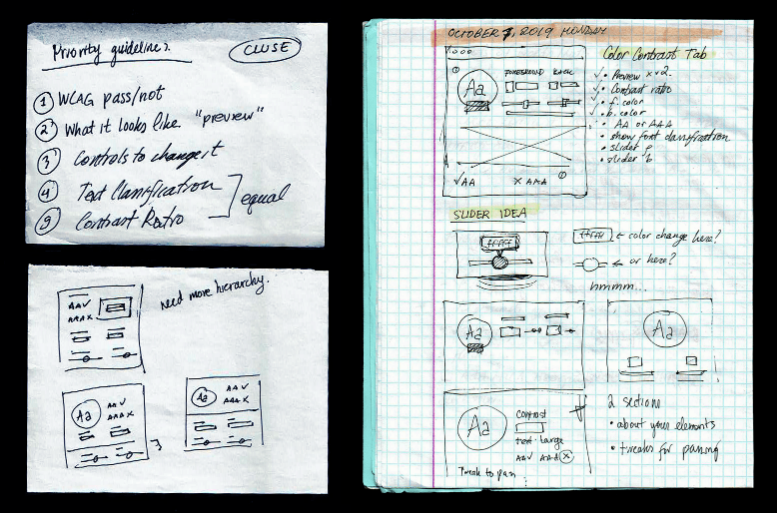 Priority guidelines.
CLOSE
① WCAG pass/not
② What it looks like. "preview"
③ Controls to change it
④ Text Classification
⑤ Contrast Ratio
equal
AA √
AAA X
Need more hierarchy.
Aa
AA √
AAA X
Aa
AA √
AAA X
OCTOBER 7, 2019 MONDAY
Aa
FOREGROUND BACK
√AA X AAA
Color Contrast Tab
√ • Preview x v2.
√ • Contrast ratio
√ • f. color
√ • b. color
• AA or AAA
• show font classification
• slider f
• slider b
SLIDER IDEA
#FFFF
#FFFF ← color change here?
← or here?
hmmm...
Aa
Aa
Aa
contrast
text · Large
AA√ AAA X
Tweak to pass
2 sections
• about your elements
• tweaks for passing